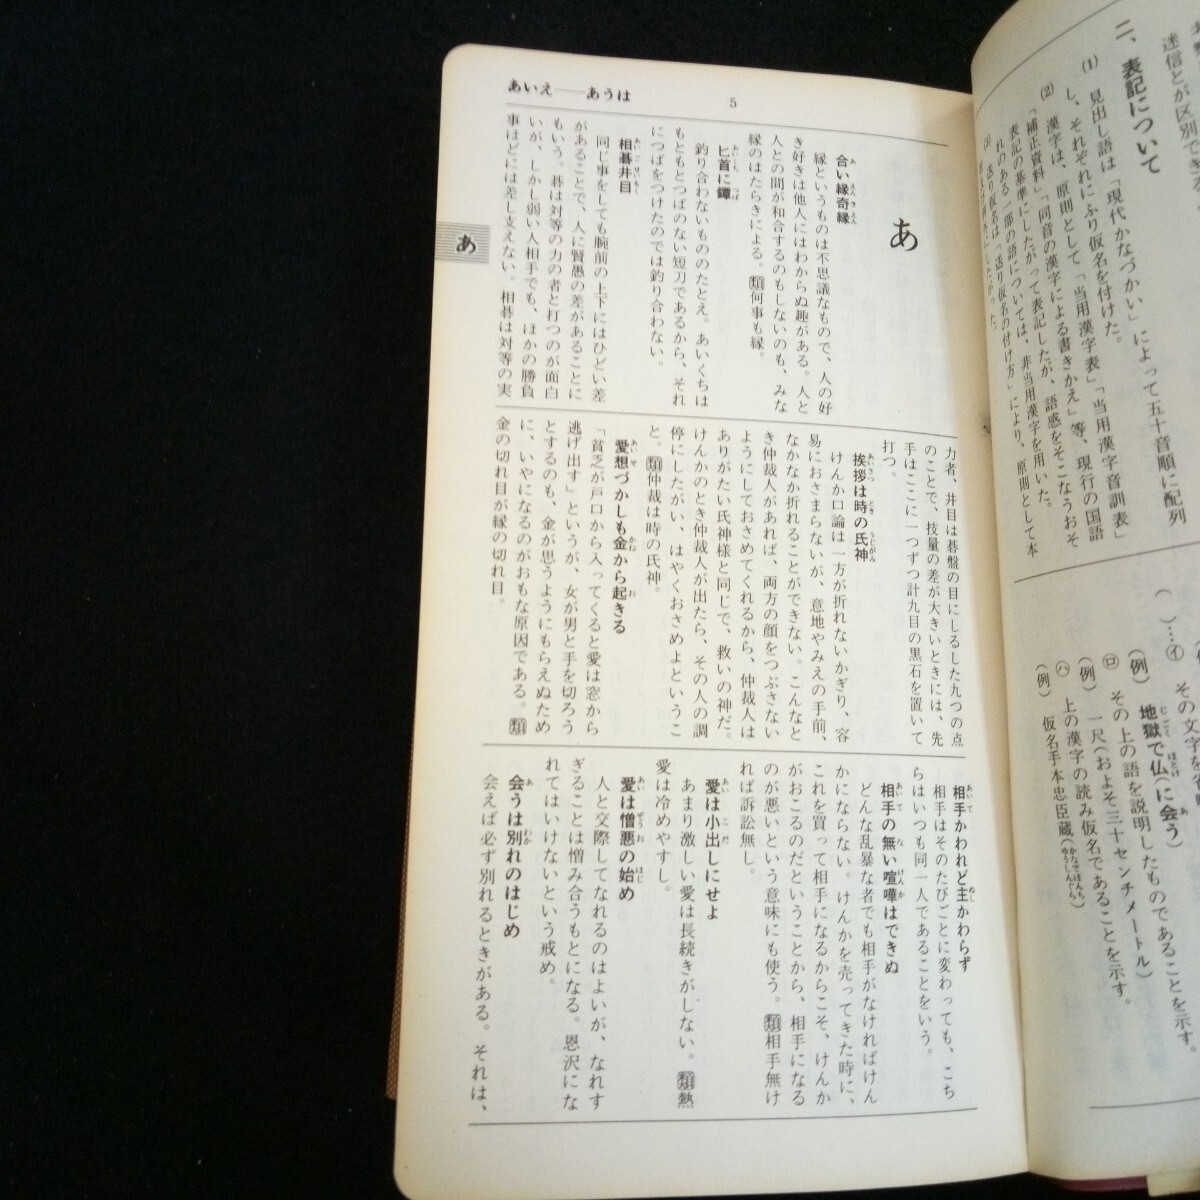 二、表記について
(1) 見出し語は「現代かなづかい」によって五十音順に配列
し、それぞれにふり仮名を付けた。
(2) 漢字は、原則として、「当用漢字表」「当用漢字音訓表」
「補正資料」「同音の漢字による書きかえ」等、現行の国語
表記の基準にしたがって表記したが、語感をそこなうおそ
れのある一部の語については、非当用漢字を用いた。
(3) 送り仮名は「送り仮名の付け方」により、原則として本
( )…㋑
(例) 地獄で仏(に会う)
㋺ その上の語を説明したものであることを示す。
(例) 一尺(およそ三十センチメートル)
㋩ 上の漢字の読み仮名であることを示す。
(例) 仮名手本忠臣蔵(かなでほんちゅうしんぐら)
あいえ――あうは 5
あ
あ
合い縁奇縁
縁というものは不思議なもので、人の好
き好きは他人にはわからぬ趣がある。人と
人との間が和合するのもしないのも、みな
縁のはたらきによる。類何事も縁。
匕首に鐔
釣り合わないもののたとえ。あいくちは
もともとつばのない短刀であるから、それ
につばをつけたのでは釣り合わない。
相碁井目
同じ事をしても腕前の上下にはひどい差
があることで、人に賢愚の差があることに
もいう。碁は対等の力の者と打つのが面白
いが、しかし弱い人相手でも、ほかの勝負
事ほどには差し支えない。相碁は対等の実
力者、井目は碁盤の目にしるした九つの点
のことで、技量の差が大きいときには、先
手はここに一つずつ計九目の黒石を置いて
打つ。
挨拶は時の氏神
けんか口論は一方が折れないかぎり、容
易におさまらないが、意地やみえの手前、
なかなか折れることができない。こんなと
き仲裁人があれば、両方の顔をつぶさない
ようにしておさめてくれるから、仲裁人は
ありがたい氏神様と同じで、救いの神だ。
けんかのとき仲裁人が出たら、その人の調
停にしたがい、はやくおさめよというこ
と。類仲裁は時の氏神。
愛想づかしも金から起きる
「貧乏が戸口から入ってくると愛は窓から
逃げ出す」というが、女が男と手を切ろう
とするのも、金が思うようにもらえぬため
に、いやになるのがおもな原因である。類
金の切れ目が縁の切れ目。
相手かわれど主かわらず
相手はそのたびごとに変わっても、こち
らはいつも同一人であることをいう。
相手の無い喧嘩はできぬ
どんな乱暴な者でも相手がなければけん
かにならない。けんかを売ってきた時に、
これを買って相手になるからこそ、けんか
がおこるのだということから、相手になる
のが悪いという意味にも使う。類相手無け
れば訴訟無し。
愛は小出しにせよ
あまり激しい愛は長続きがしない。類熱
愛は冷めやすし。
愛は憎悪の始め
人と交際してなれるのはよいが、なれす
ぎることは憎み合うもとになる。恩沢にな
れてはいけないという戒め。
会うは別れのはじめ
会えば必ず別れるときがある。それは、